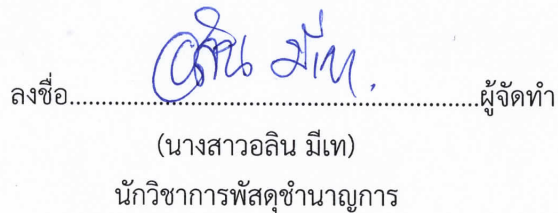 อลิน มีเท.
ลงชื่อ........................................................ผู้จัดทำ
(นางสาวอลิน มีเท)
นักวิชาการพัสดุชำนาญการ